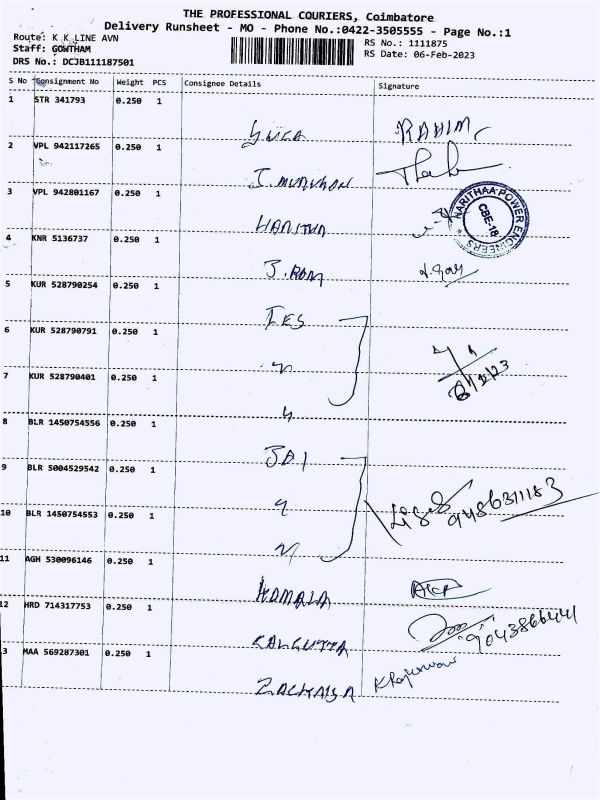 THE PROFESSIONAL COURIERS, Coimbatore
Delivery Runsheet - MO - Phone No.:0422-3505555 - Page No.:1
Route: K K LINE AVN
RS No.: 1111875
Staff: GOWTHAM
RS Date: 06-Feb-2023
DRS No.: DCJB111187501
S No Consignment No Weight PCS Consignee Details Signature
1 STR 341793 0.250 1
RAHIM
2 VPL 942117265 0.250 1
3 VPL 942801167 0.250 1
HARITHAA POWER ENGINEERS
CBE-18
4 KNR 5136737 0.250 1
J. RAM
5 KUR 528790254 0.250 1
IES
6 KUR 528790791 0.250 1
7 KUR 528790401 0.250 1
8 BLR 1450754556 0.250 1
JAI
9 BLR 5004529542 0.250 1
9486311183
10 BLR 1450754553 0.250 1
11 AGH 530096146 0.250 1
KAMALA
12 HRD 714317753 0.250 1
9043866441
CALCUTTA
3 MAA 569287301 0.250 1